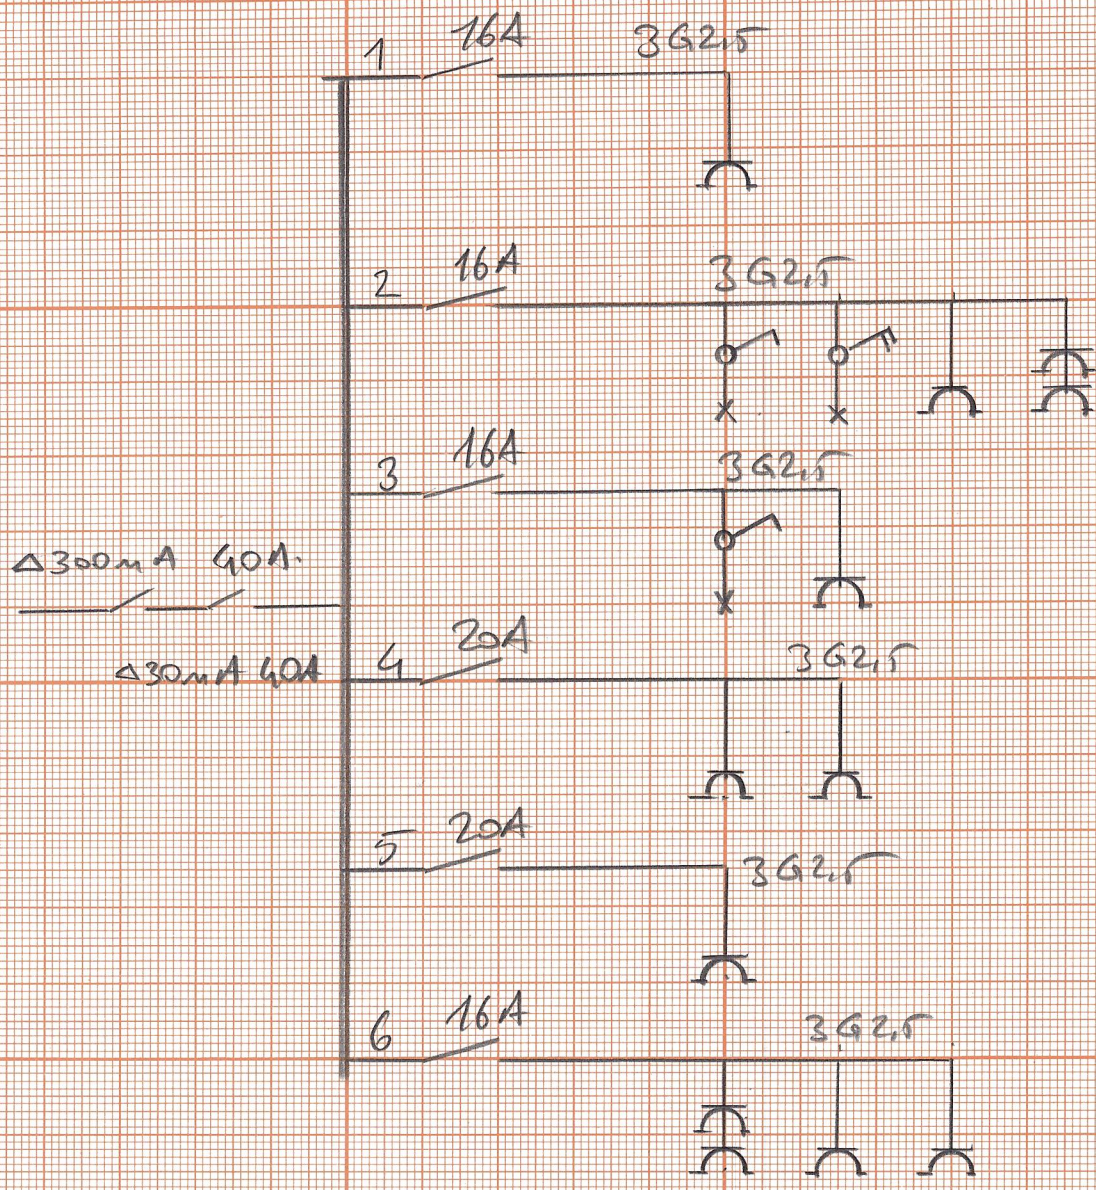 1 16A 3G2,5
2 16A 3G2,5
3 16A 3G2,5
Δ300mA 40A.
Δ30mA 40A
4 20A 3G2,5
5 20A 3G2,5
6 16A 3G2,5